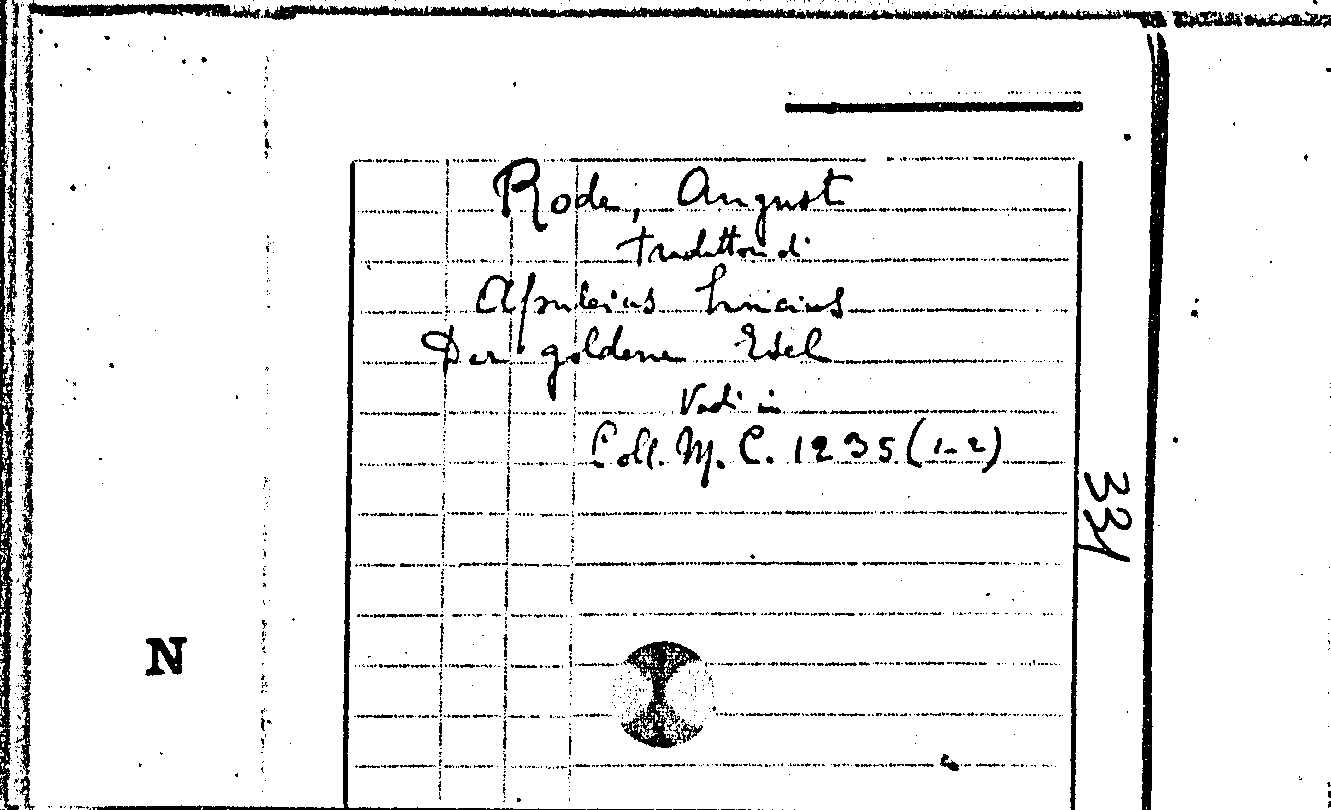 Rode, August
traduttore di
Apuleius Lucius
Der goldene Esel
Vedi in
Coll. M. C. 1235 (1-2)
331
N